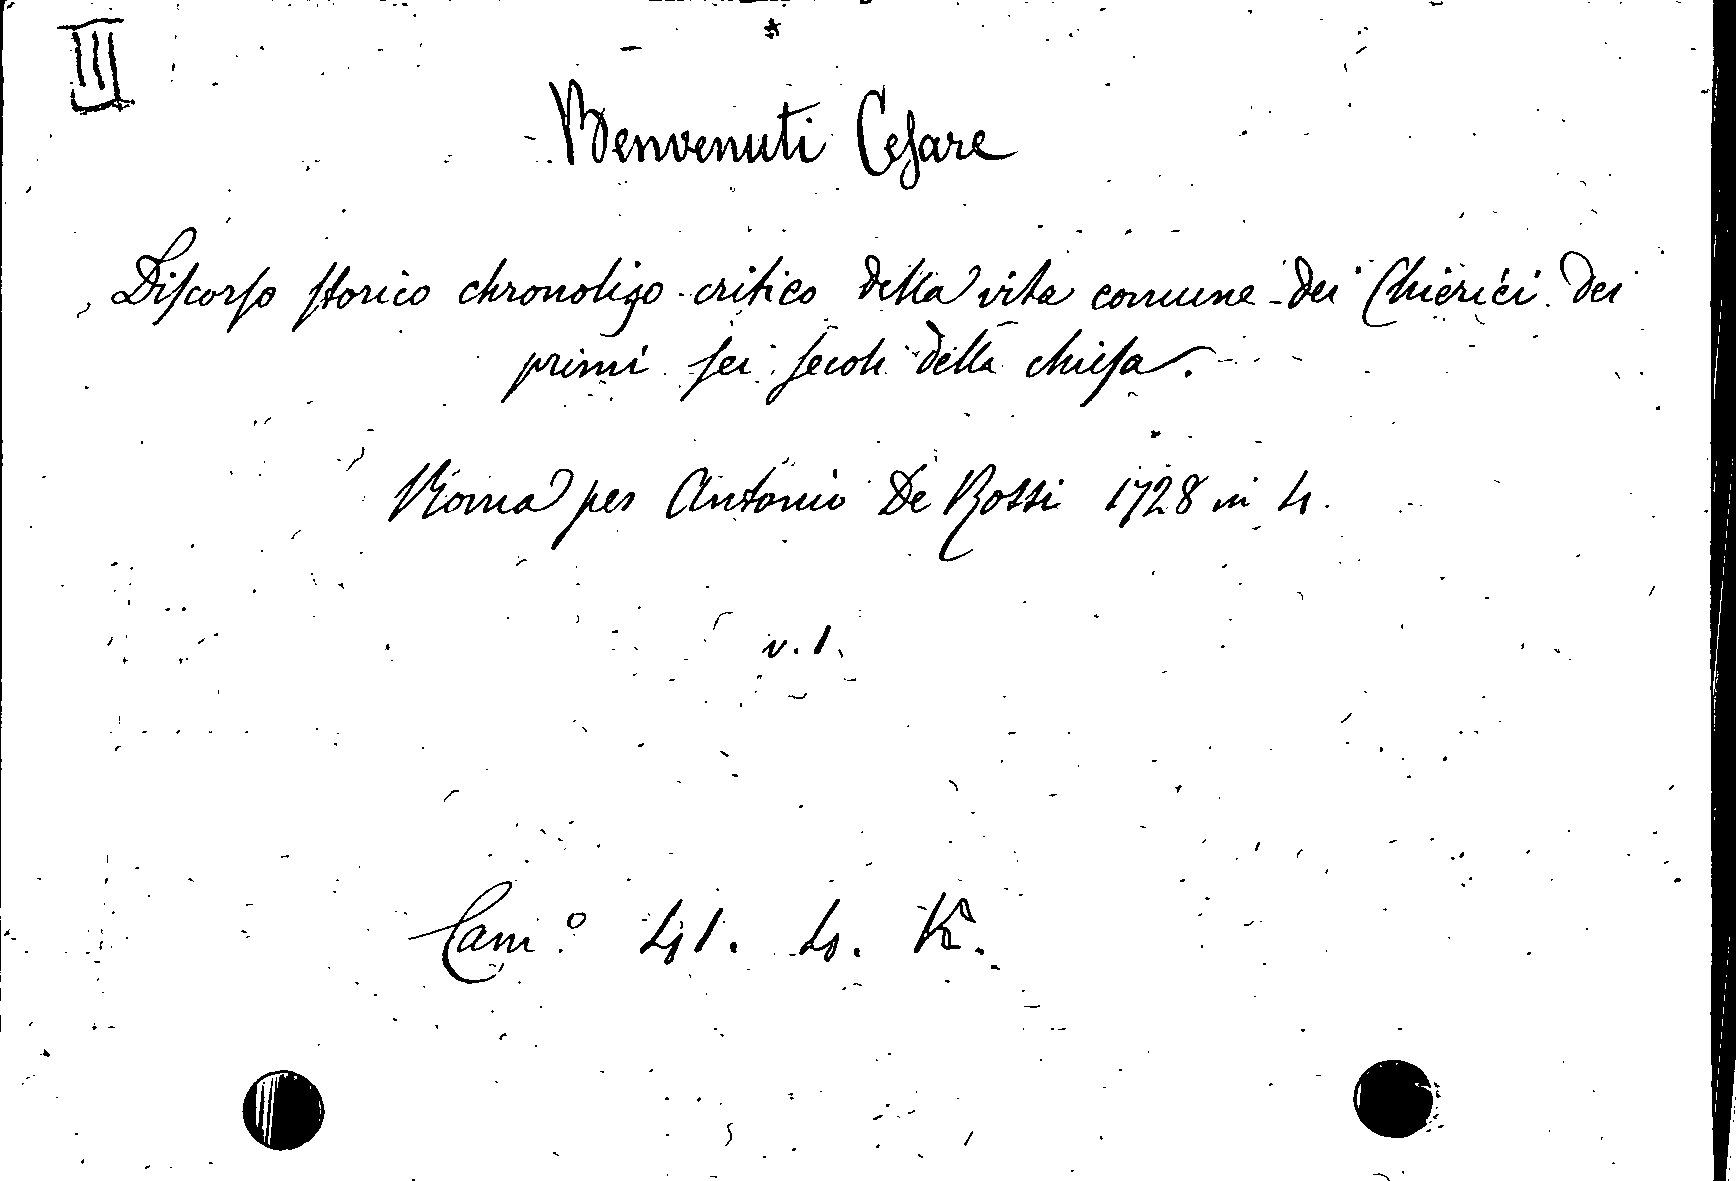 III
Benvenuti Cesare
Discorso storico chronoligo-critico della vita comune dei Chierici dei
primi sei secoli della chiesa.
Roma per Antonio De Rossi 1728 in 4.
v. 1.
Cam.º 41. 4. K.